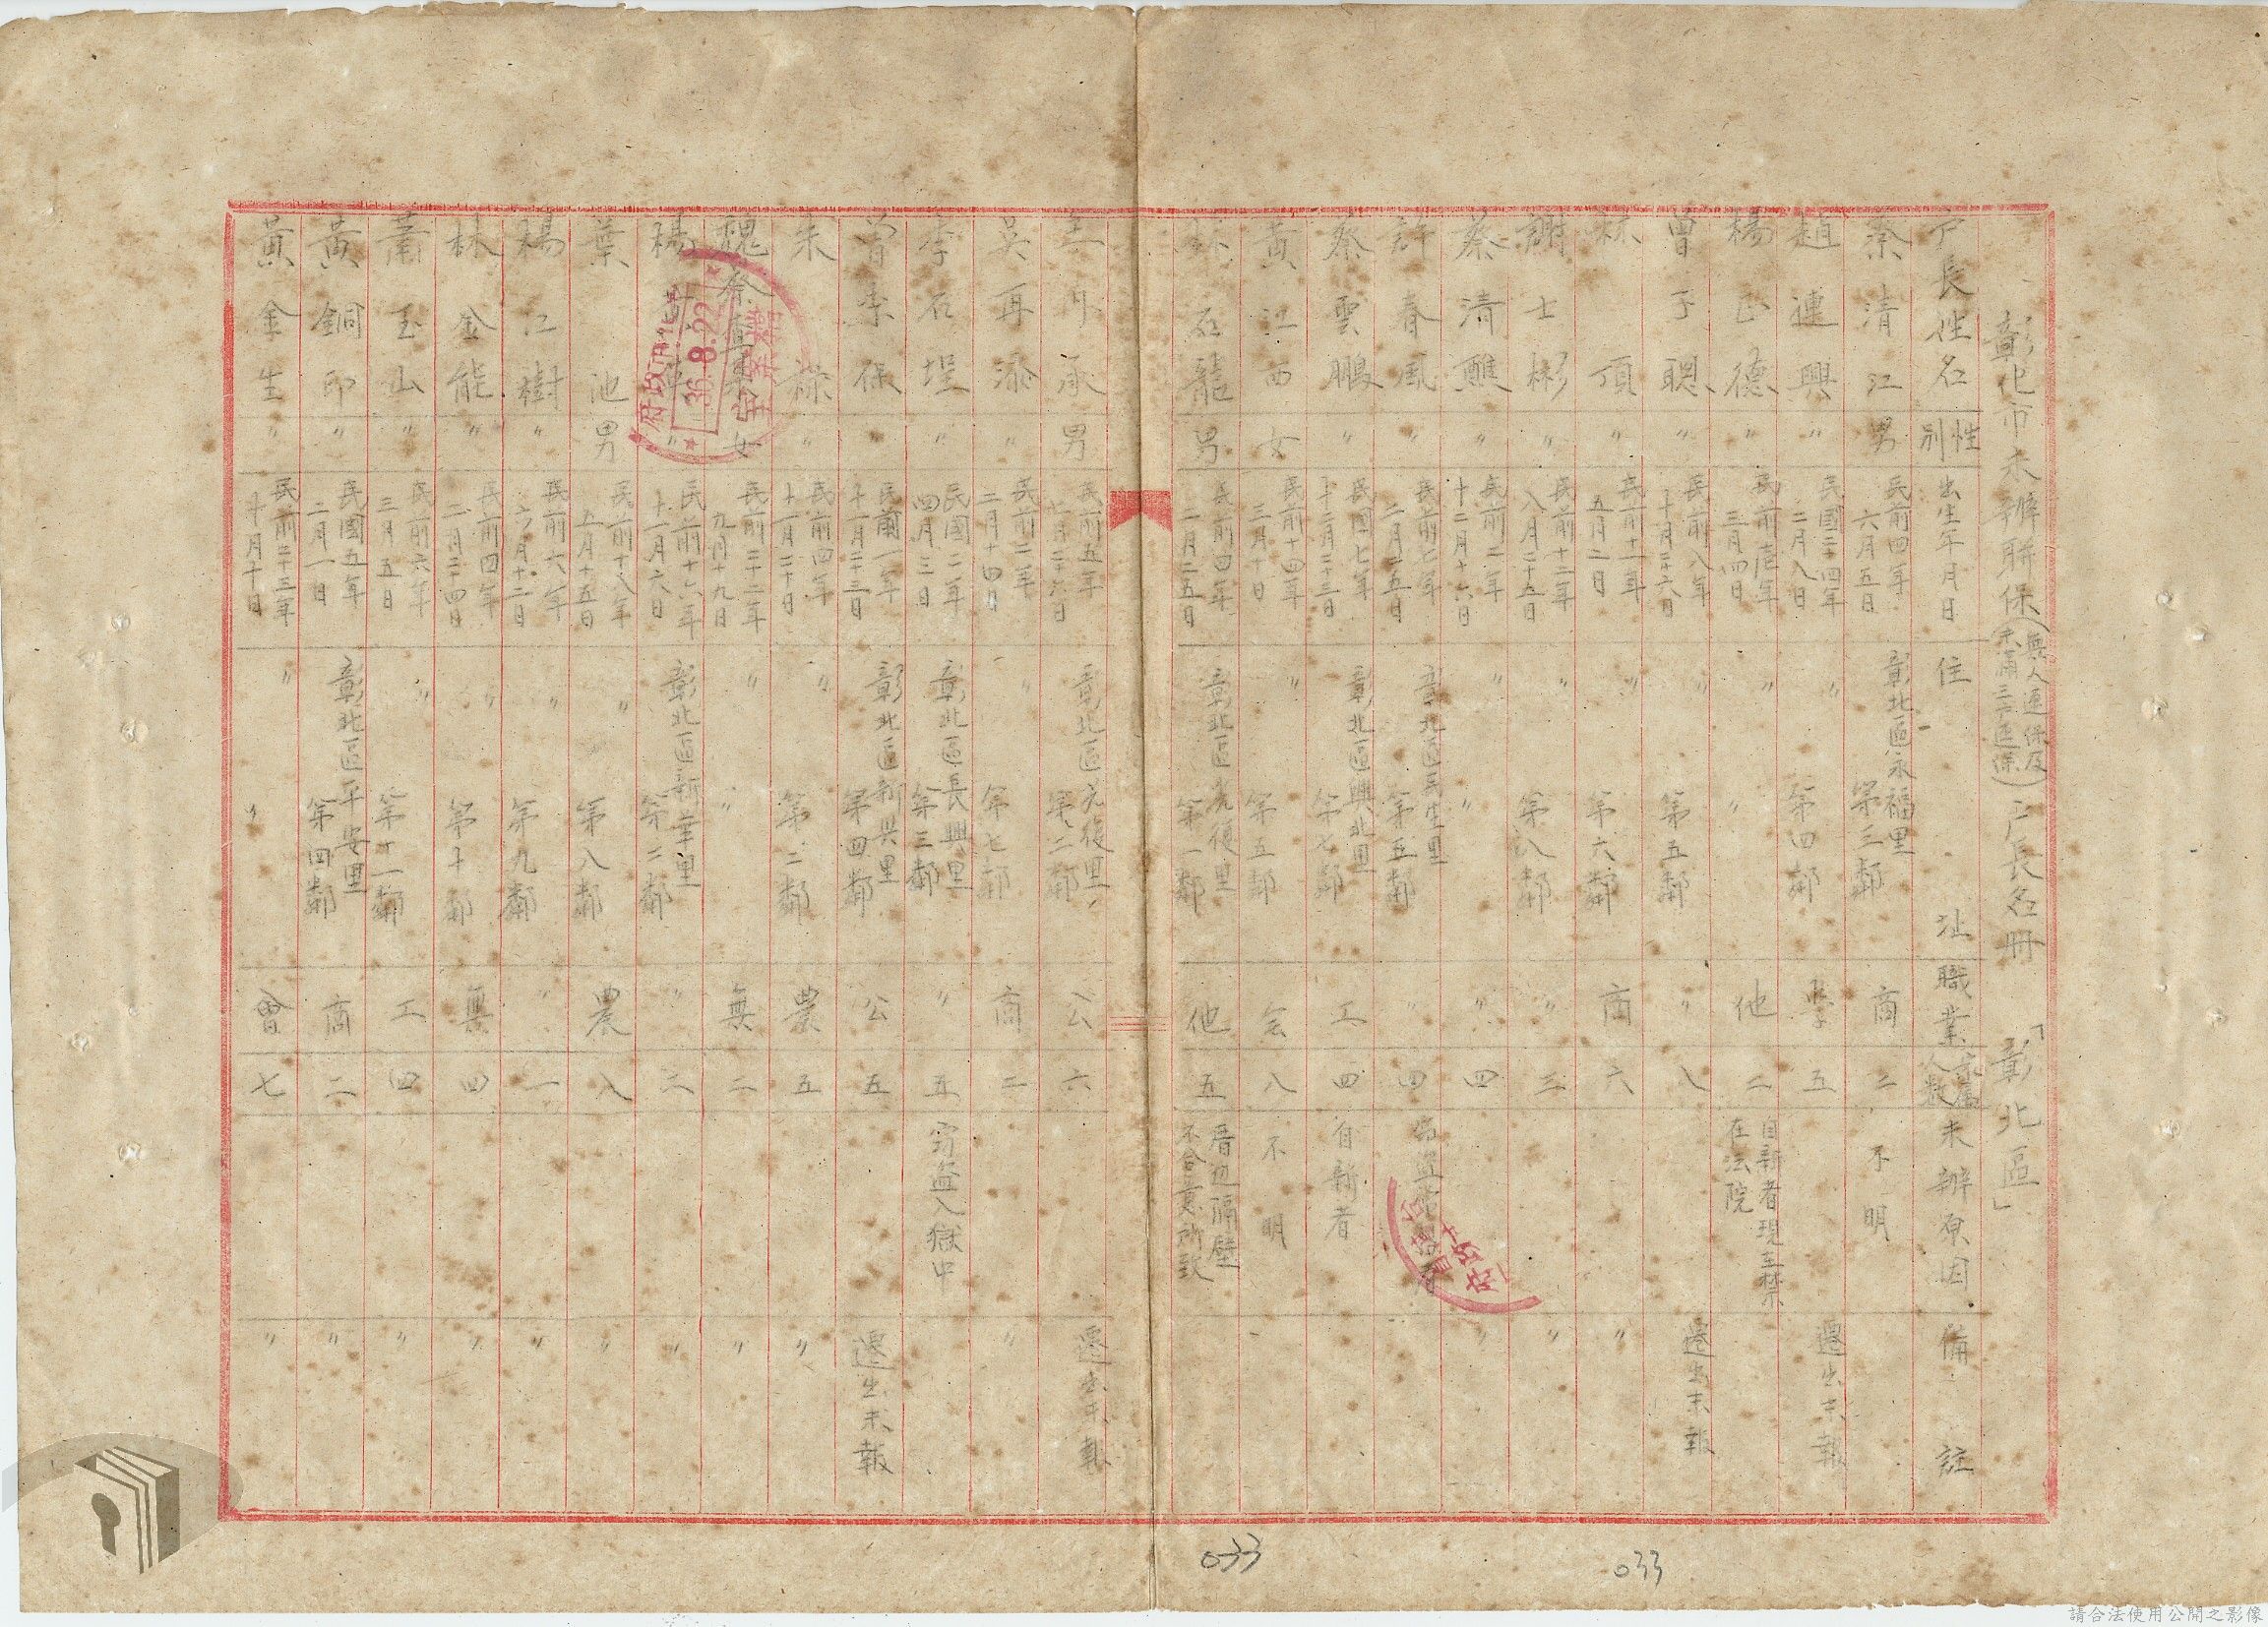 彰化市未辦聯保(無人連保及未滿三戶連保)戶長名冊 「彰北區」
戶長姓名 性別 出生年月日 住址 職業 家屬人數 未辦原因 備註
蔡清江 男 民前四年六月五日 彰北區永福里第三鄰 商 二 不明
趙連興 〃 民國二十四年二月八日 〃 第四鄰 學 五 遷出未報
楊正德 〃 民前壱年三月四日 〃 〃 他 二 自新者現至禁在法院
曾子聰 〃 民前八年十月二十六日 〃 第五鄰 〃 八 遷出未報
林頂 〃 民前十一年五月二日 〃 第六鄰 商 六 〃
謝士彬 〃 民前十二年八月二十五日 〃 第八鄰 〃 三 〃
蔡清 〃 民前二年十二月十六日 〃 〃 〃 四 〃
許春風 〃 民前七年二月二五日 彰北區民生里第五鄰 〃 四
蔡雲鵬 〃 民國七年十二月二十三日 彰北區興北里第七鄰 工 四 自新者
黃江西 女 民前十四年三月十日 〃 第五鄰 会 八 不明
林石龍 男 民前四年二月二五日 彰北區光復里第一鄰 他 五 厝边隔壁不合意所致
承 男 民前五年七月二十六日 彰北區光復里第二鄰 公 六 遷出未報
吳再添 〃 民前二年二月十四日 〃 第七鄰 商 二 〃
李石埕 〃 民國二年四月三日 彰北區長興里第三鄰 〃 五 窃盜入獄中
曾李保 〃 民前一年十一月二十三日 彰北區新興里第四鄰 公 五 遷出未報
朱祿 〃 民前四年十一月二十日 〃 第二鄰 農 五 〃
魏蔡 女 民前二十二年九月十九日 〃 〃 無 二 〃
楊 〃 民前十六年十一月六日 彰北區新華里第二鄰 〃 六 〃
葉池 男 民前十八年五月十五日 〃 第八鄰 農 八 〃
楊江樹 〃 民前六年六月十二日 〃 第九鄰 〃 一 〃
林金能 〃 民前四年二月二十四日 〃 第十鄰 無 四 〃
蕭玉山 〃 民前六年三月五日 〃 第十一鄰 工 四 〃
黃銅印 〃 民國五年二月一日 彰北區平安里第四鄰 商 二 〃
黃金生 〃 民前二十三年十月十日 〃 〃 會 七 〃
36.8.22
033
033
請合法使用公開之影像